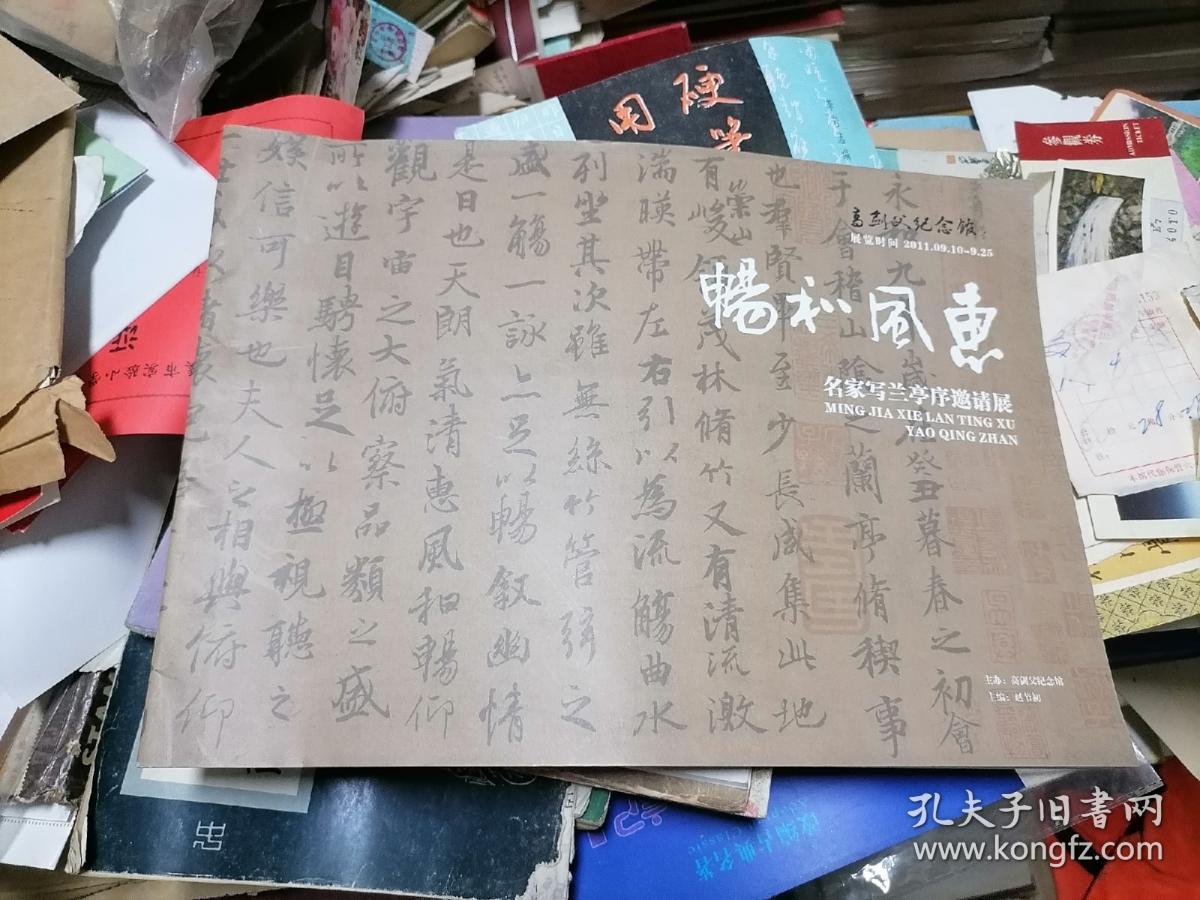 高剑父纪念馆
展览时间 2011.09.10-9.25
惠風和暢
名家写兰亭序邀请展
MING JIA XIE LAN TING XU
YAO QING ZHAN
主办：高剑父纪念馆
主编：赵节初
永和九年歲在癸丑暮春之初會
于會稽山陰之蘭亭脩稧事
也群賢畢至少長咸集此地
有崇山峻領茂林脩竹又有清流激
湍暎帶左右引以為流觴曲水
列坐其次雖無絲竹管弦之
盛一觴一詠亦足以暢敘幽情
是日也天朗氣清惠風和暢仰
觀宇宙之大俯察品類之盛
所以遊目騁懷足以極視聽之
娛信可樂也夫人之相與俯仰
硬筆
用
參觀券
ADMISSION TICKET
孔夫子旧书网
www.kongfz.com